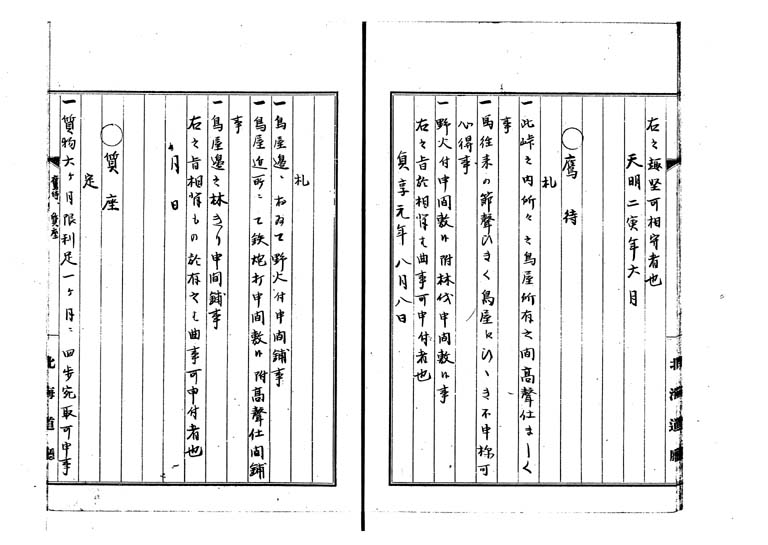 右之趣堅可相守者也
天明二寅年六月
○鷹待
札
一此峠之内所々之鳥屋所有之間高聲仕ましく
事
一馬往来の節聲ひきく鳥屋江ひゝき不申様可
心得事
一野火付申間敷附林伐申間敷事
右之旨於相背は曲事可申付者也
貞享元年八月八日
札
一鳥屋邊ニおゐて野火付申間鋪事
一鳥屋近所ニて鉄炮打申間敷附高聲仕間鋪
事
一鳥屋邊之林きり申間鋪事
右之旨相背もの於有之は曲事可申付者也
月日
○質座
定
一質物六ヶ月限利足一ヶ月ニ四歩宛取可申事
鷹待 質座
北海道廳
北海道廳